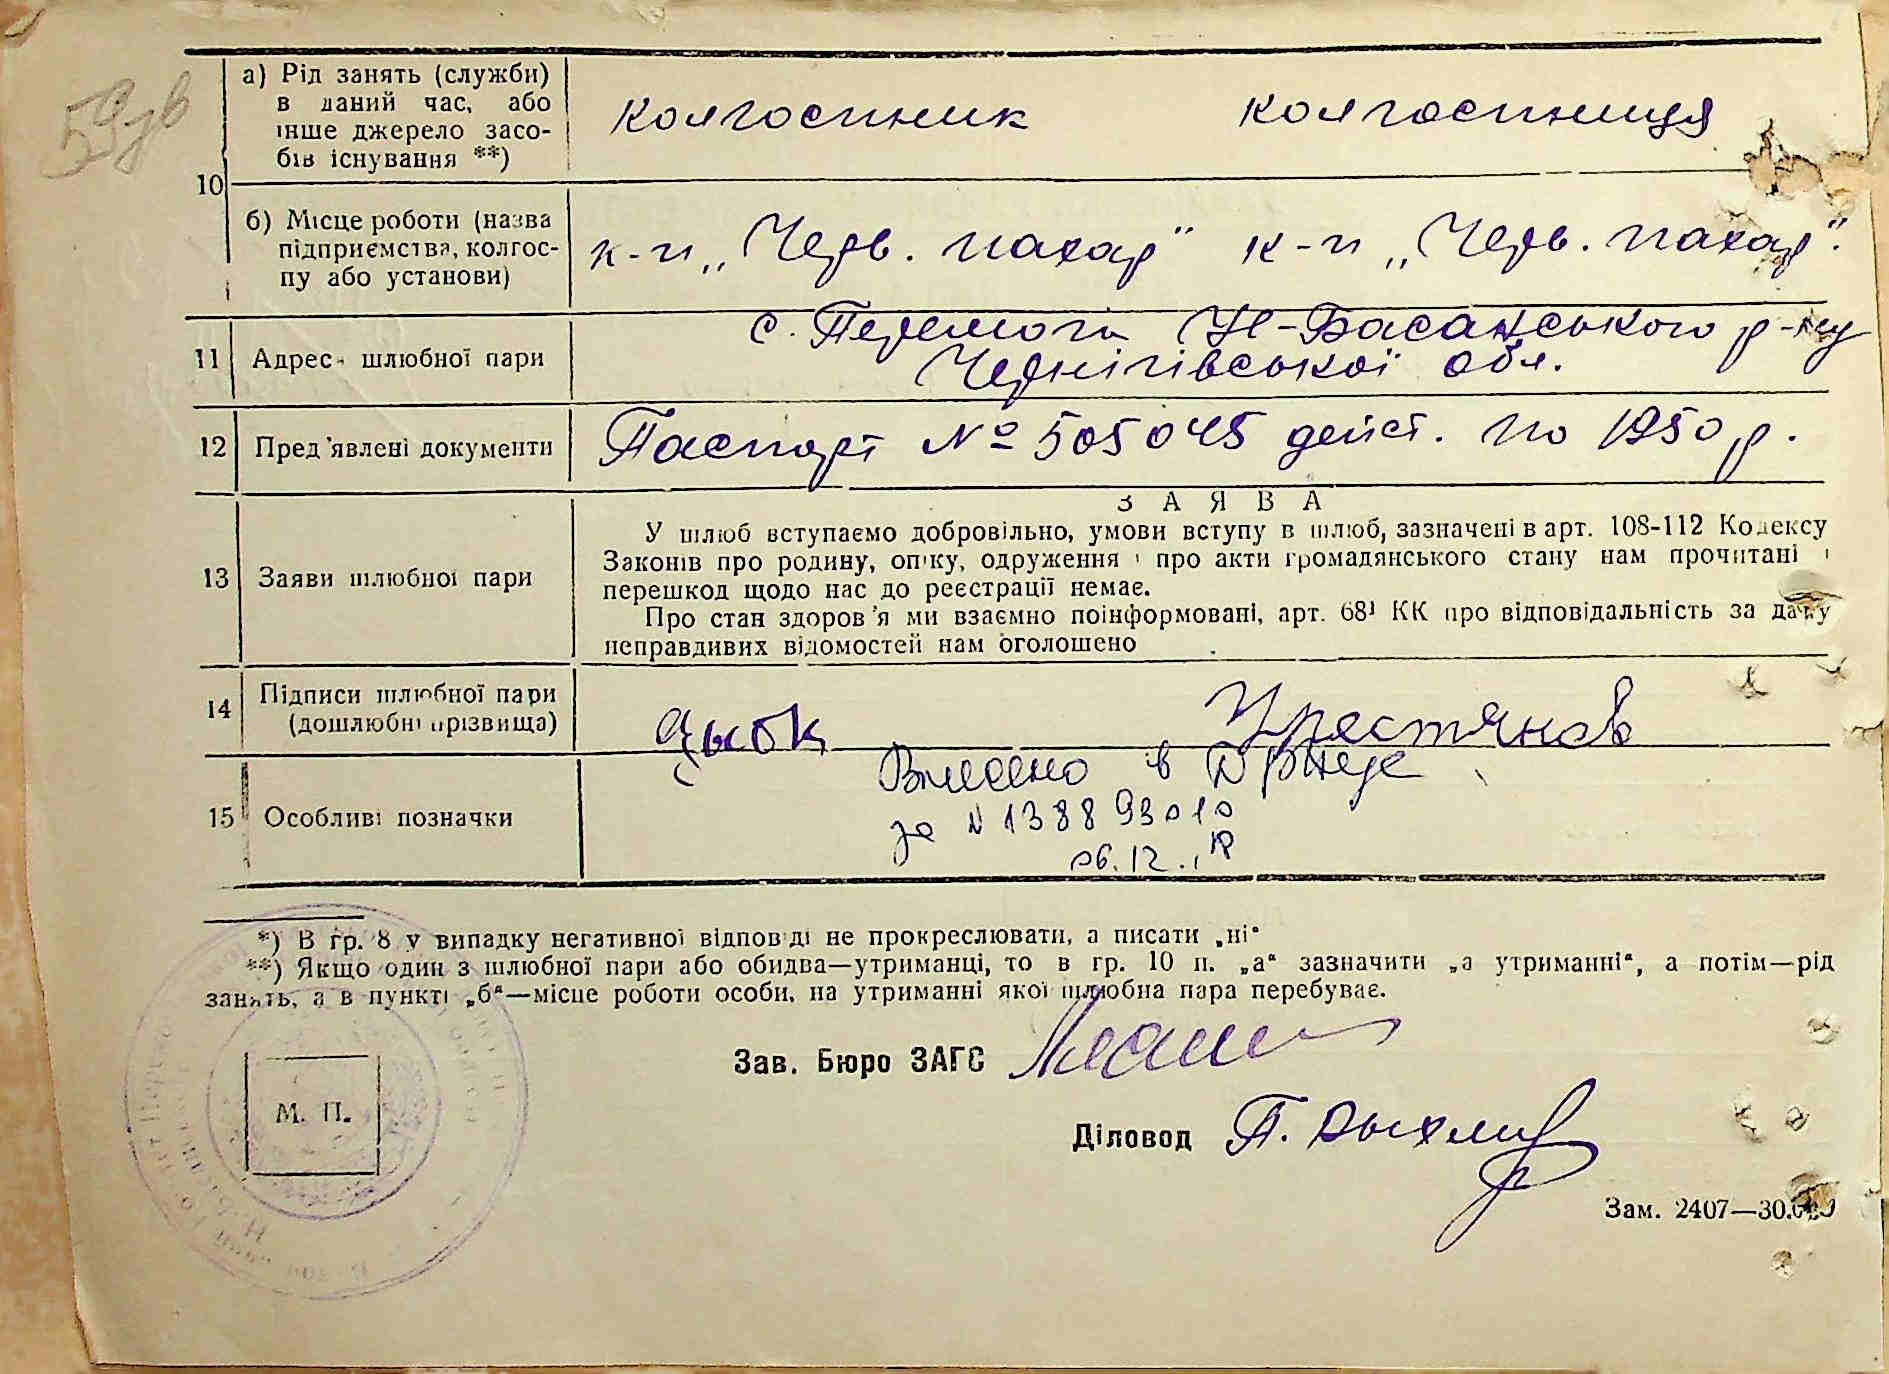 59зв
а) Рід занять (служби) в даний час, або інше джерело засо-бів існування **)
колгоспник колгоспниця
10
б) Місце роботи (назва підприємства, колгос-пу або установи)
к-п „Черв. пахар" к-п „Черв. пахар".
11 Адреса шлюбної пари
с. Перемога Н-Басанського р-ну
Чернігівської обл.
12 Пред'явлені документи
Паспорт № 505045 дейст. по 1950 р.
13 Заяви шлюбної пари
ЗАЯВА
У шлюб вступаємо добровільно, умови вступу в шлюб, зазначені в арт. 108-112 Кодексу
Законів про родину, опіку, одруження і про акти громадянського стану нам прочитані і
перешкод щодо нас до реєстрації немає.
Про стан здоров'я ми взаємно поінформовані, арт. 68¹ КК про відповідальність за дачу
неправдивих відомостей нам оголошено
14 Підписи шлюбної пари
(дошлюбні прізвища)
15 Особливі позначки
Внесено в
за N 138893010
06.12.
*) В гр. 8 у випадку негативної відповіді не прокреслювати, а писати „ні"
**) Якщо один з шлюбної пари або обидва—утриманці, то в гр. 10 п. „а" зазначити „а утриманні", а потім—рід
занять, а в пункті „б"—місце роботи особи, на утриманні якої шлюбна пара перебуває.
Зав. Бюро ЗАГС
М. П.
Діловод П.
Зам. 2407—30.